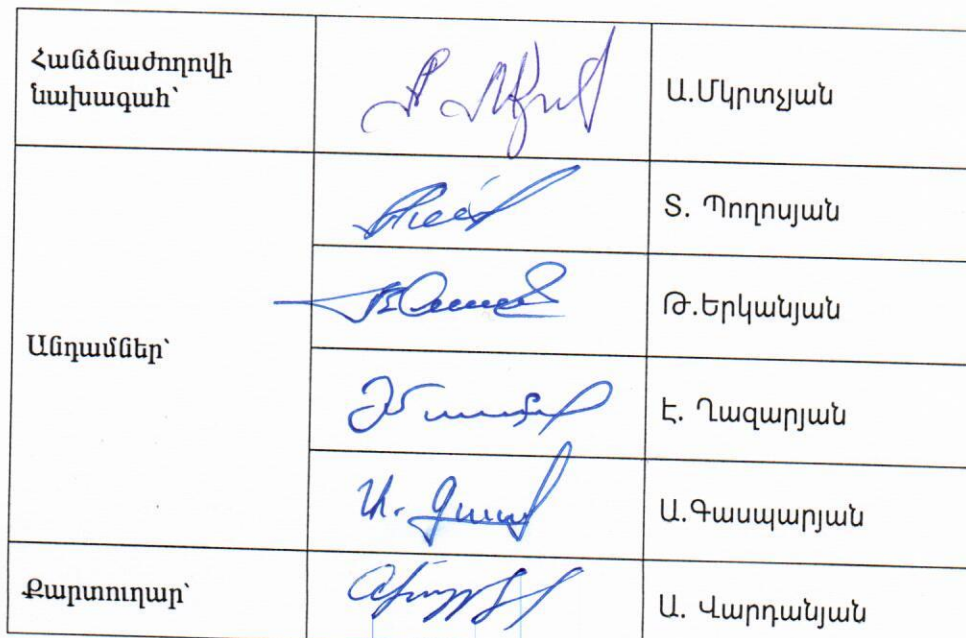 Հանձնաժողովի
նախագահ՝
Ա.Մկրտչյան
Տ. Պողոսյան
Թ.Երկանյան
Անդամներ՝
Է. Ղազարյան
Ա.Գասպարյան
Քարտուղար՝
Ա. Վարդանյան